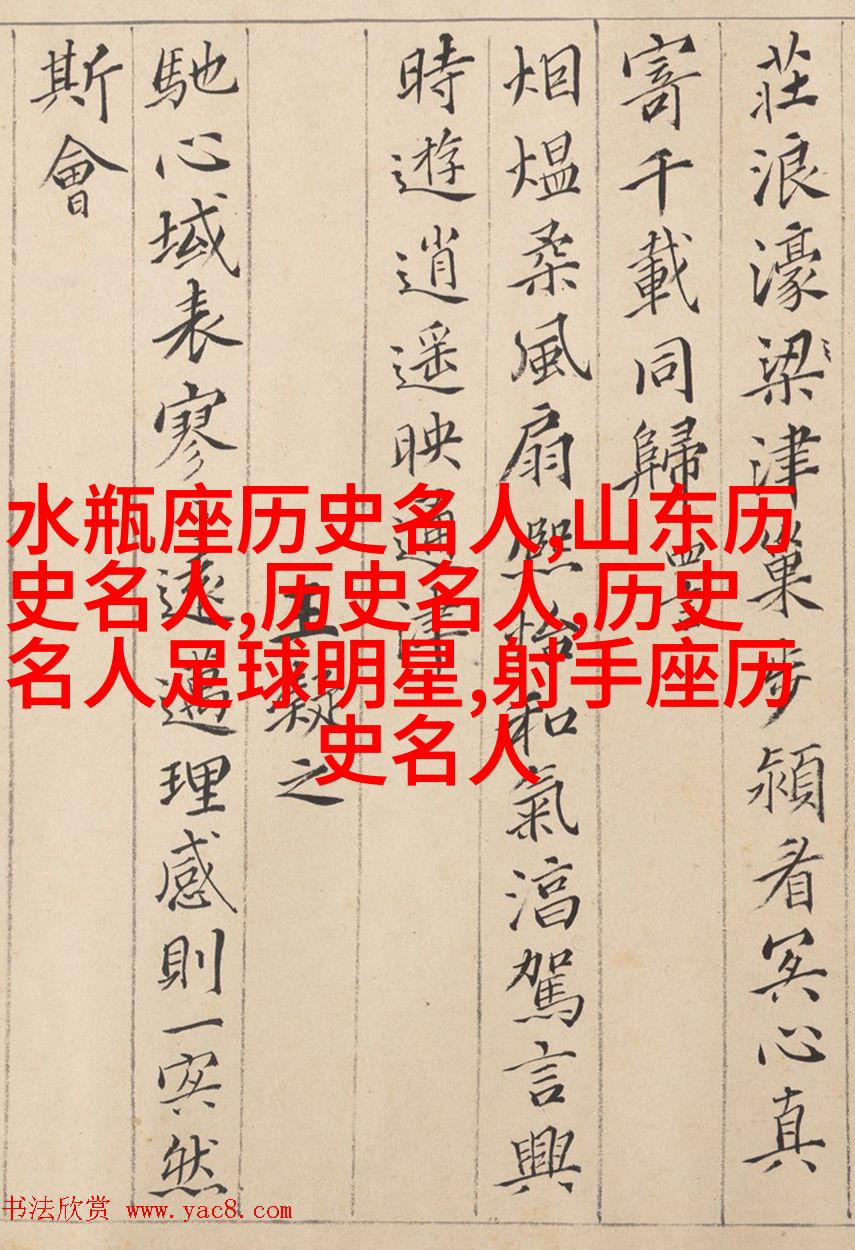 莊浪濠梁津巢步潁冥心真
寄千載同歸 四言
烟熅柔風扇熙怡和氣淳駕言興
時遊逍遥映通津
王凝之
馳心域表寥〻遠邁理感則一冥然
斯會
水瓶座历史名人,山东历
史名人,历史名人,历史
名人足球明星,射手座历
史名人
书法欣赏 www.yac8.com